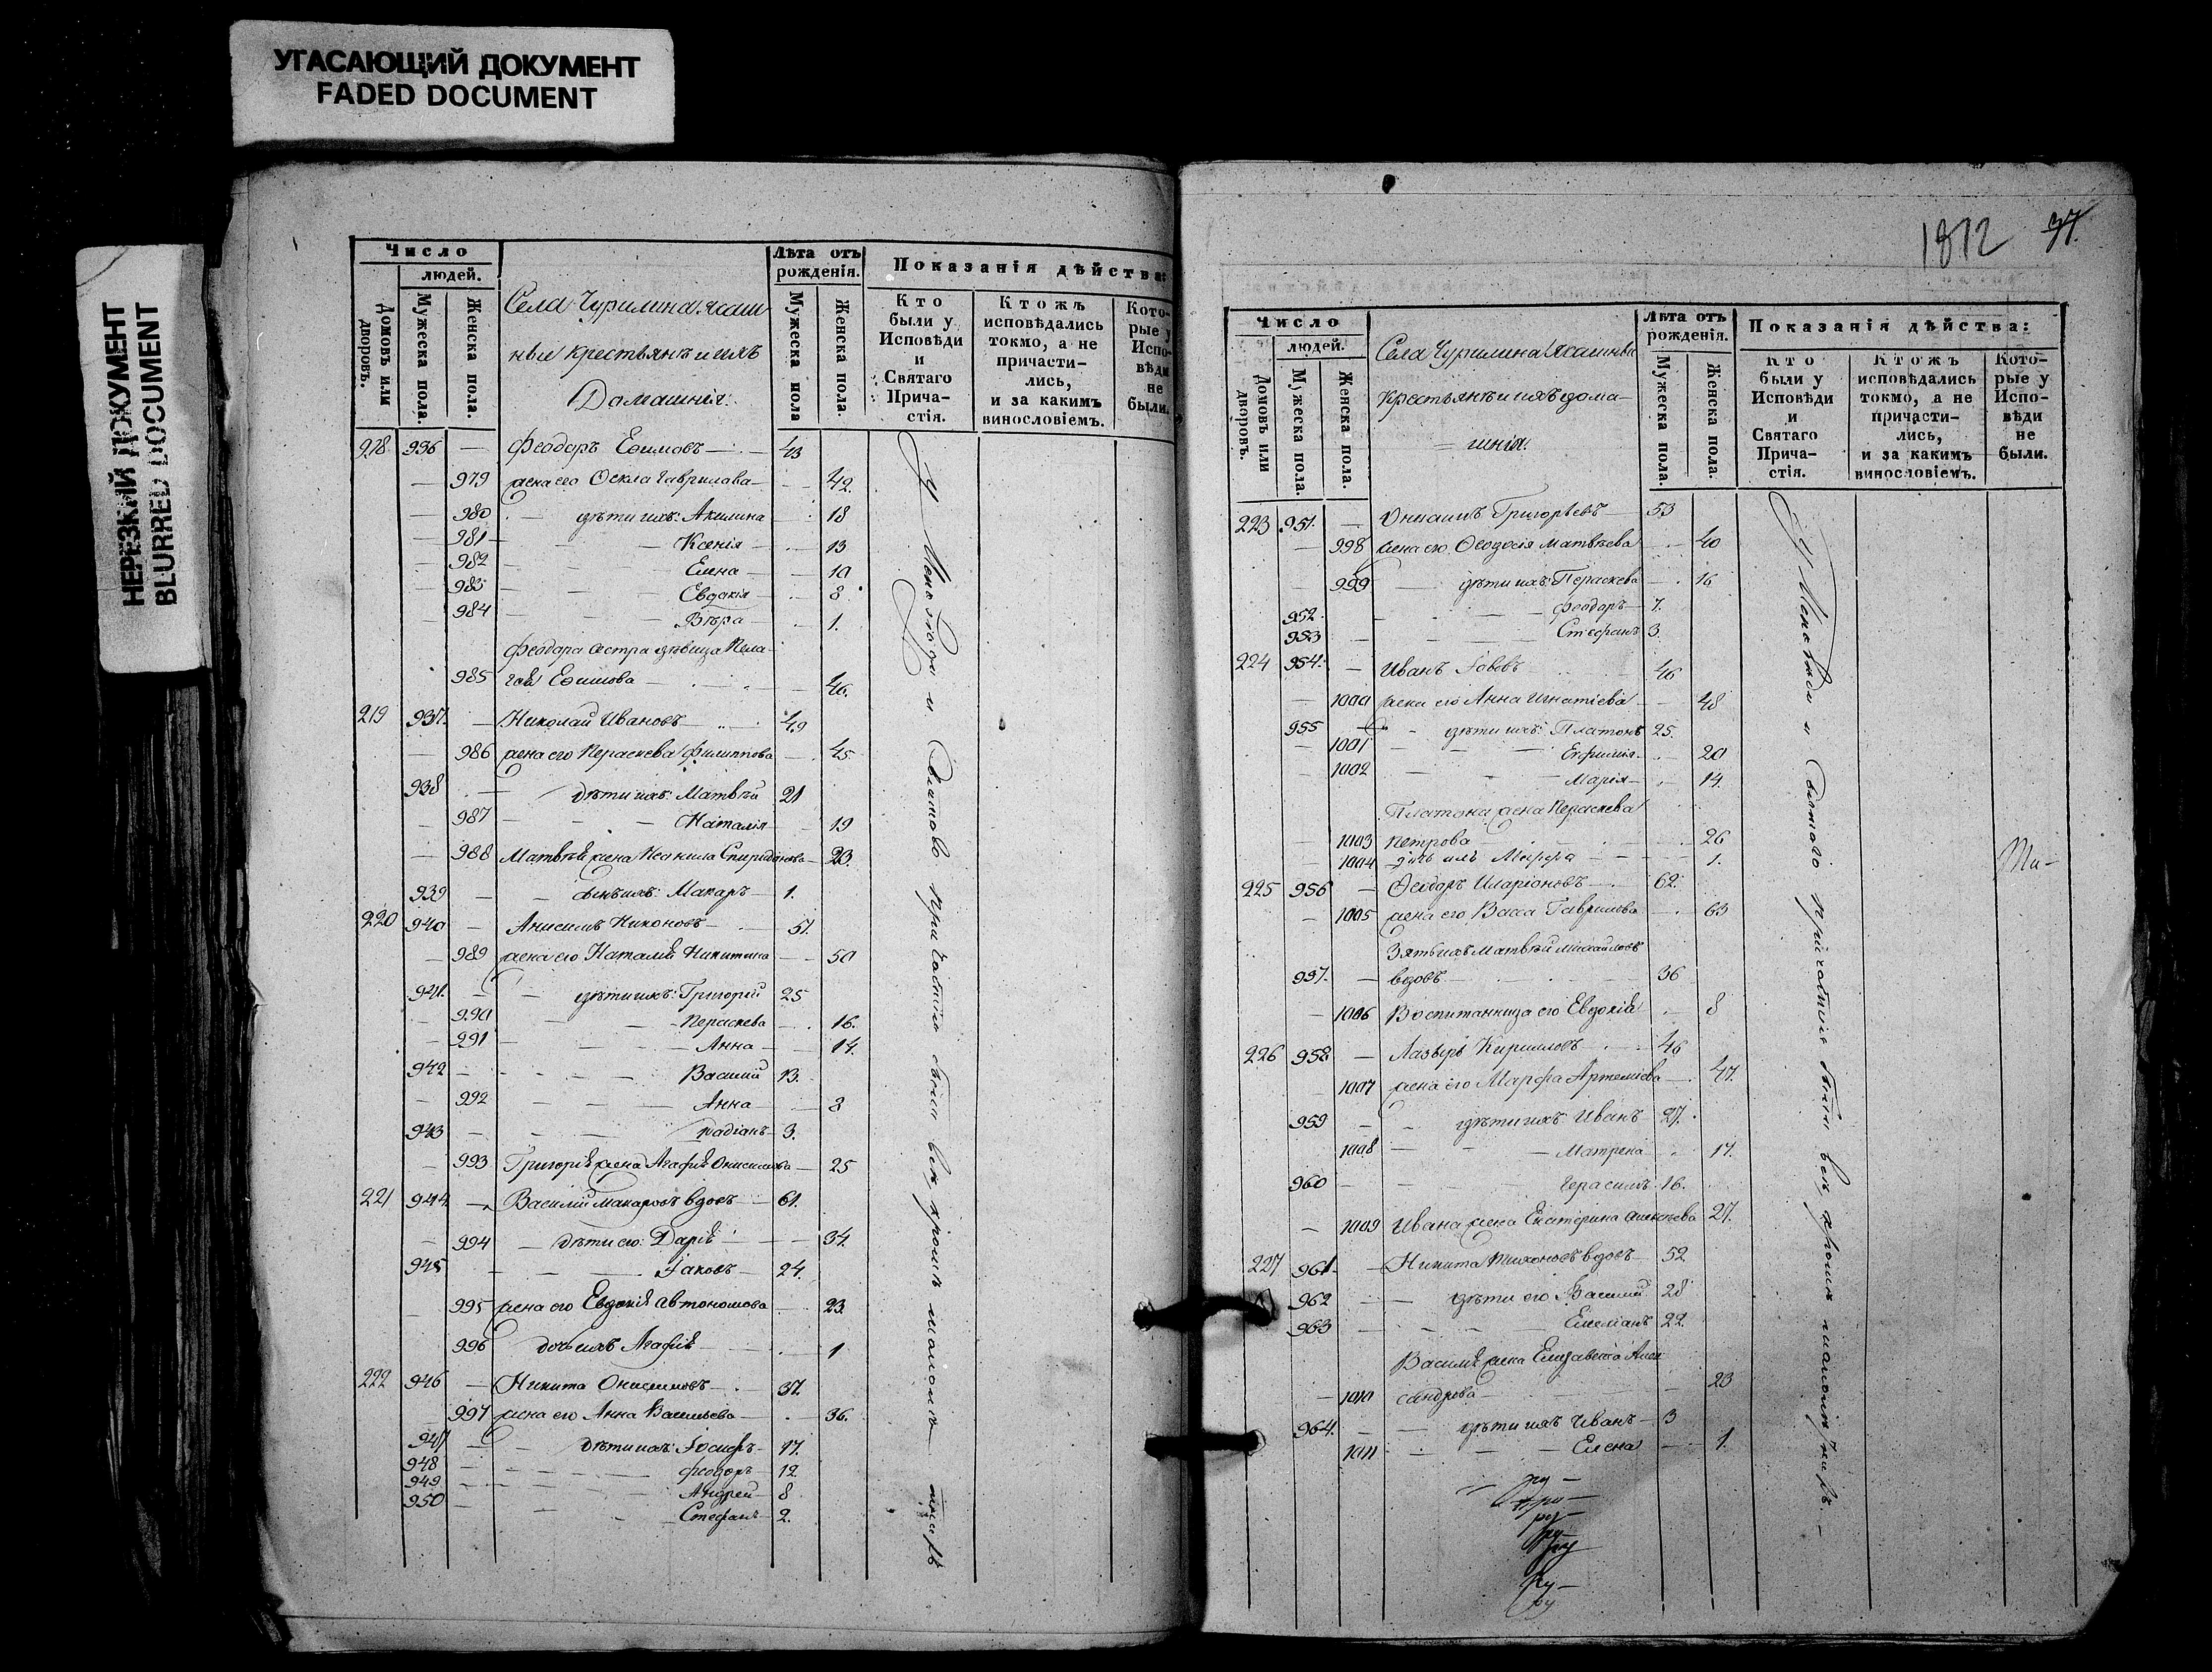 УГАСАЮЩИЙ ДОКУМЕНТ
FADED DOCUMENT
НЕРЕЗКИЙ ДОКУМЕНТ
BLURRED DOCUMENT
Число
людей.
Домовъ или дворовъ.
Мужеска пола.
Женска пола.
Села Чурилина ясаш-
ныя крестьянъ и ихъ
Домашнія.
Лѣта отъ рожденія.
Мужеска пола
Женска пола.
Показанія дѣйства:
Кто были у Исповѣди и Святаго Прича-стія.
Ктожъ исповѣдались токмо, а не причасти-лись, и за какимъ винословіемъ.
Кото-рые у Испо-вѣди не были.
218 936 — Феодоръ Ефимовъ — 43
— 979 жена его Фекла Гаврилова — 42.
— 980 — дѣти ихъ: Акилина — 18
— 981 — Ксенія — 13
— 982 — Елена — 10
— 983 — Евдокія — 8
— 984 — Вѣра — 1.
Феодора сестра дѣвица Пела-
985 гея Ефимова — 46.
219 937. — Николай Ивановъ — 49
— 986 жена его Пераскева Филиппова — 45
938 — дѣти ихъ: Матвѣй 21
987 — Наталія — 19
— 988 Матвѣя жена Неонила Спиридонова — 23.
939 — сынъ ихъ: Макаръ — 1.
220 940 — Анисимъ Никоновъ — 51.
— 989 жена его Наталія Никитина — 50
941. — дѣти ихъ: Григорій 25
— 990 — Пераскева — 16.
— 991 — Анна — 14.
942 — Василий 13.
— 992 — Анна — 8
943 — Радіонъ — 3.
— 993 Григорія жена Агафія Онисимова — 25
221 944 — Василий Макаровъ вдовъ — 61.
— 994 — дѣти его: Дарія — 34.
945 — Іаковъ — 24.
— 995 жена его Евдокія Автономова — 23.
996 дочь ихъ Агафія — 1
222 946 — Никита Онисимовъ — 37.
— 997 жена его Анна Васильева — 36.
947 — дѣти ихъ: Іосифъ — 17.
948 — Феодоръ — 12
949 — Андрей — 8
950 — Стефанъ — 2.
У Исповѣди и Святаго причастія были всѣ кромѣ малолѣт
1812
37.
Число
людей.
Домовъ или дворовъ.
Мужеска пола.
Женска пола.
Села Чурилина Ясашныя
крестьянъ и ихъ дома-
шнія.
Лѣта отъ рожденія.
Мужеска пола.
Женска пола.
Показанія дѣйства:
Кто были у Исповѣди и Святаго Прича-стія.
Ктожъ исповѣдались токмо, а не причасти-лись, и за какимъ винословіемъ.
Кото-рые у Испо-вѣди не были.
223 951. — Григорьевъ — 53
— 998 жена его Феодосія Матвѣева — 40
— 999 — дѣти ихъ: Пераскева — 16
952. — Феодоръ — 7.
953 — Стефанъ 3.
224 954. — Иванъ Іовевъ 46
— 1000 жена его Анна Игнатіева — 48
955 — дѣти ихъ: Платонъ 25.
— 1001 — Евфимія — 20
— 1002 — Марія — 14.
Платона жена Пераскева
— 1003 Петрова — 26
— 1004 дочь ихъ Марфа — 1.
225 956 — Феодоръ Иларіоновъ — 62.
— 1005 жена его Васса Гаврилова — 63
Зять ихъ Матвѣй Михайловъ
957. — вдовъ — 36
— 1006 Воспитанница его Евдокія — 8
226 958 — Лазарь Кириловъ — 46
1007 жена его Марфа Артеміева — 47.
959 — дѣти ихъ Иванъ — 27.
1008 — Матрена — 17.
960 — Герасимъ 16.
— 1009 Ивана жена Екатерина Алексѣева 27.
227 961. — Никита Тихоновъ вдовъ — 52
962 — дѣти его Василий 28
963 — Емеліанъ 22.
Василія жена Елизавета Алек
— 1010 сандрова — 23
964. — дѣти ихъ Иванъ — 3
1011 — Елена — 1.
У Исповѣди и Святаго причастія были всѣ, кромѣ малолѣтнихъ —
Ти-